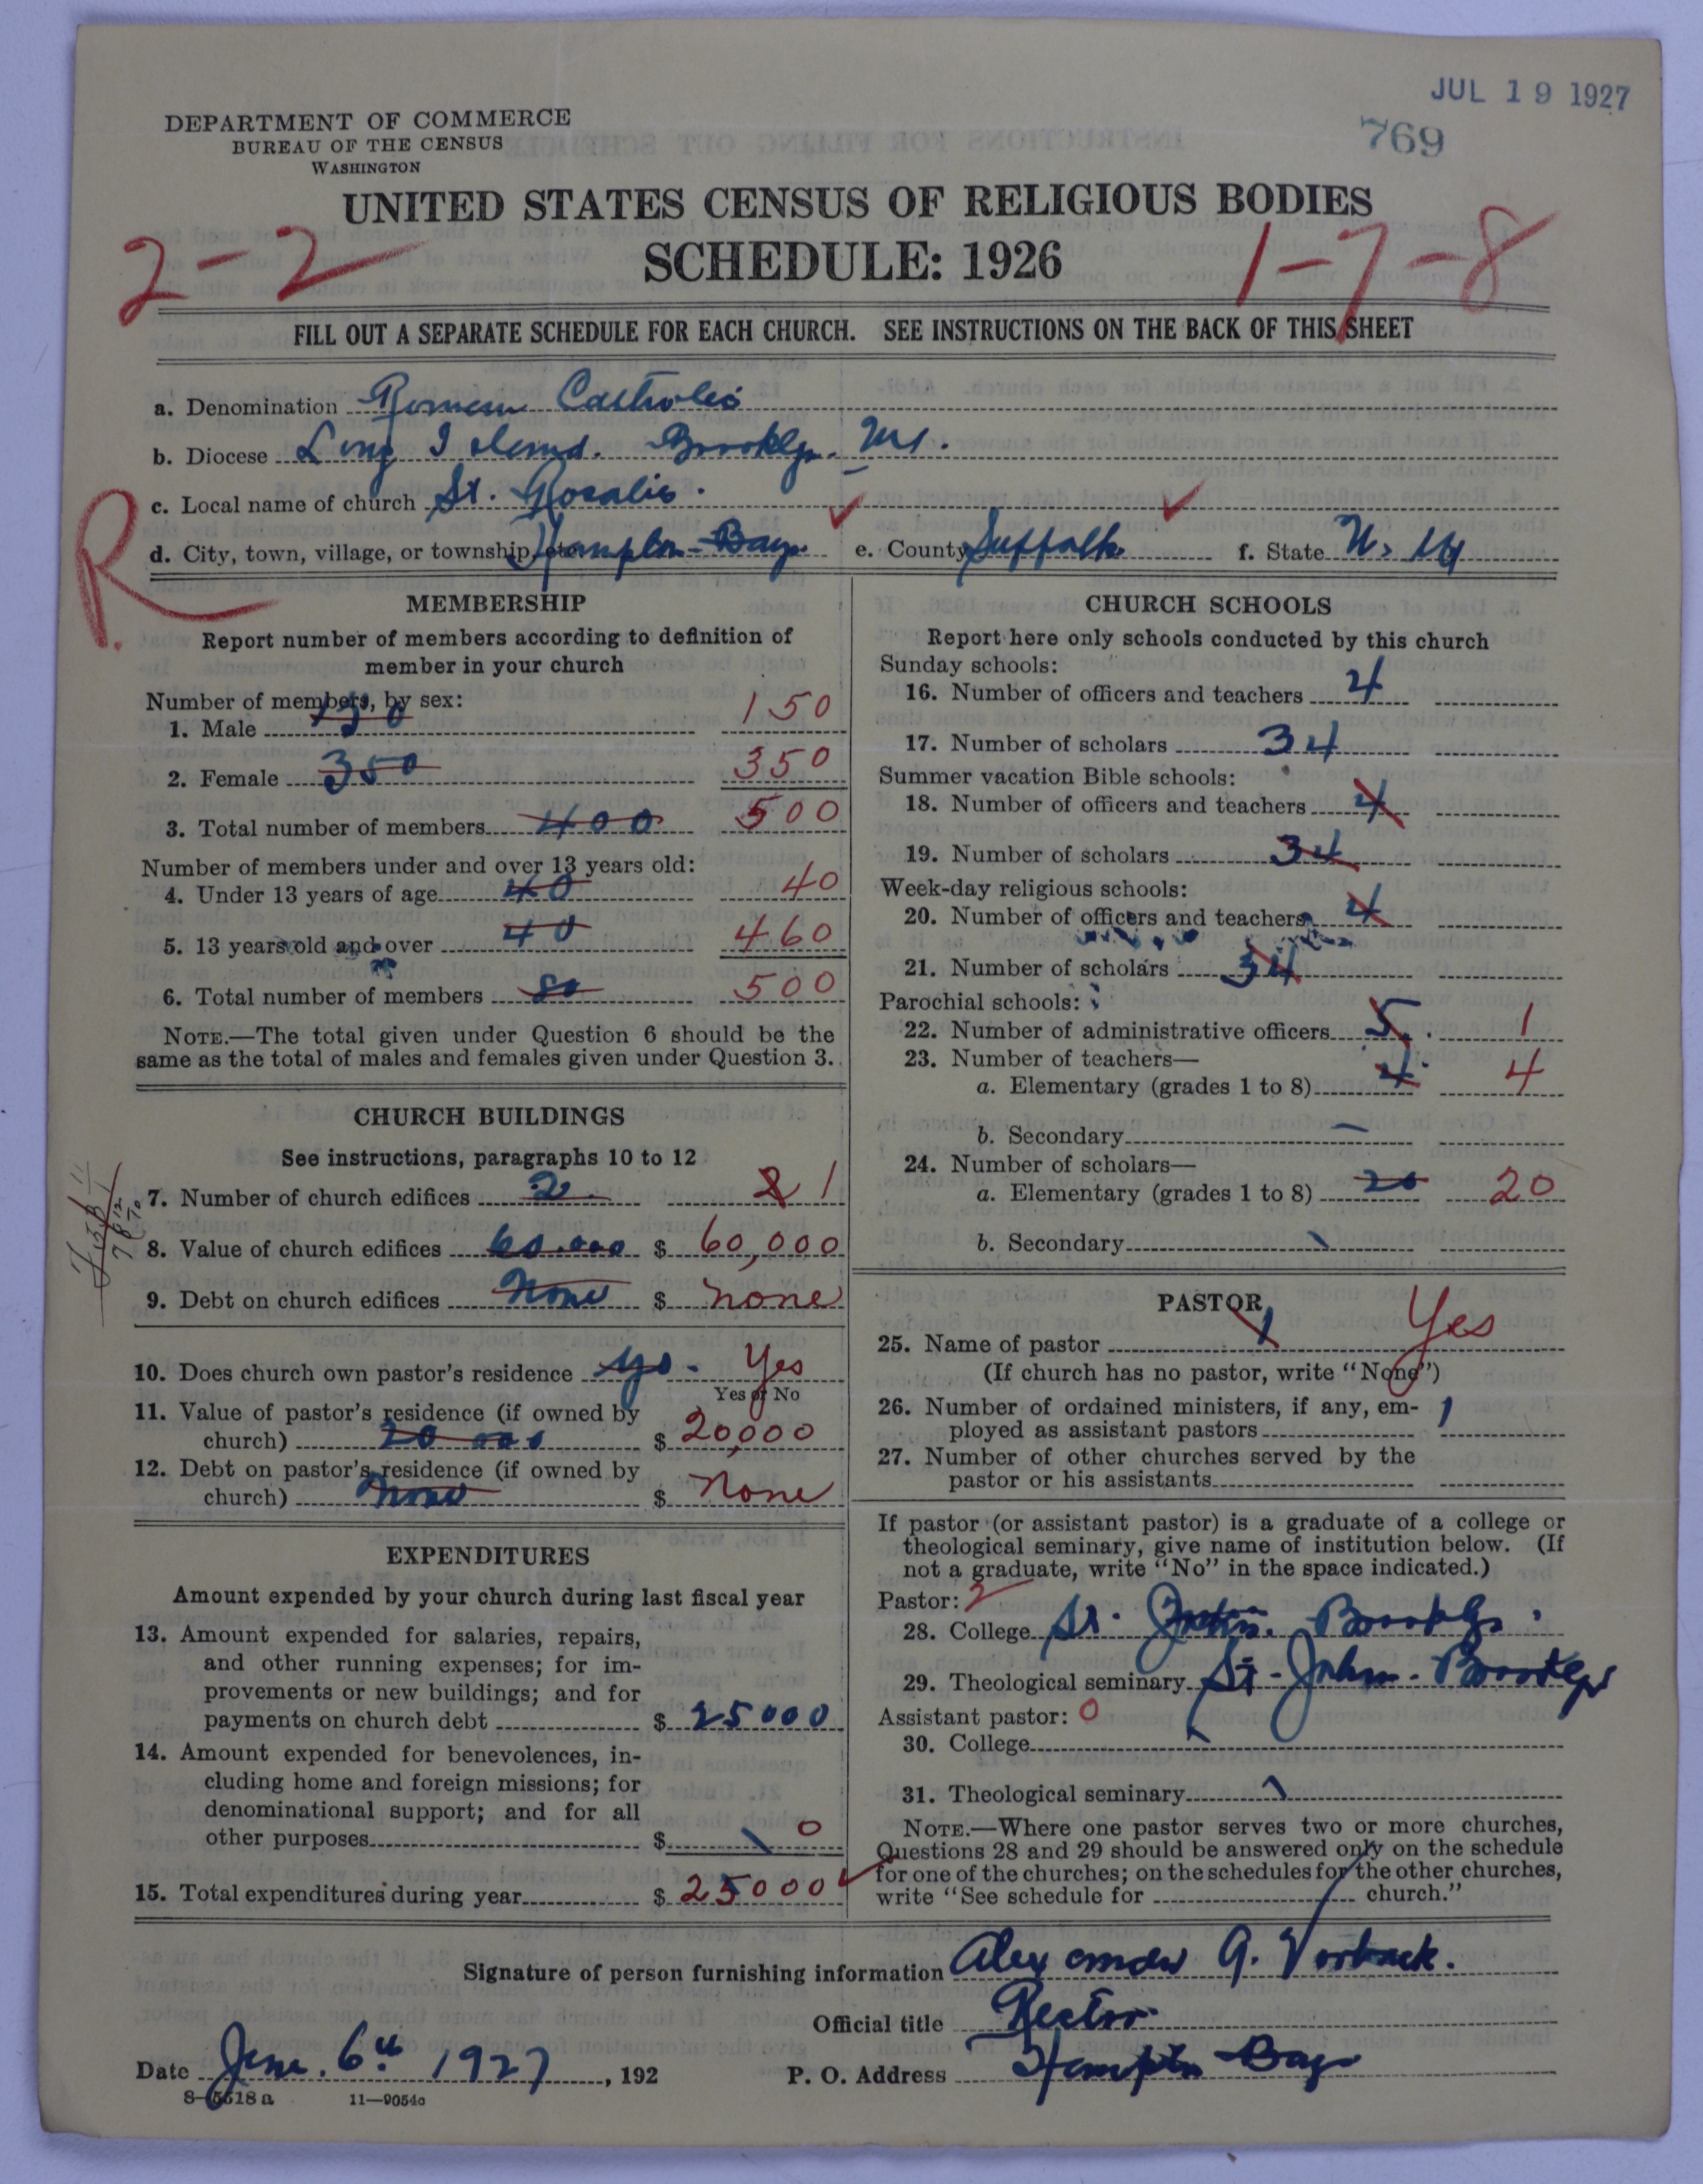 JUL 19 1927
769
DEPARTMENT OF COMMERCE
BUREAU OF THE CENSUS
WASHINGTON
UNITED STATES CENSUS OF RELIGIOUS BODIES
SCHEDULE: 1926
2-2
1-7-8
FILL OUT A SEPARATE SCHEDULE FOR EACH CHURCH. SEE INSTRUCTIONS ON THE BACK OF THIS SHEET
a. Denomination Roman Catholic
b. Diocese Long Island. Brooklyn. NY.
c. Local name of church St. Rosalie.
R.
d. City, town, village, or township, etc. Hampton-Bays e. County Suffolk f. State N. Y
MEMBERSHIP
Report number of members according to definition of
member in your church
Number of members, by sex:
1. Male 150 150
2. Female 350 350
3. Total number of members 400 500
Number of members under and over 13 years old:
4. Under 13 years of age 40 40
5. 13 years old and over 40 460
6. Total number of members 80 500
NOTE.—The total given under Question 6 should be the
same as the total of males and females given under Question 3.
CHURCH BUILDINGS
See instructions, paragraphs 10 to 12
7. Number of church edifices 2. 2 1
8. Value of church edifices 60.000 $ 60,000
9. Debt on church edifices None $ none
10. Does church own pastor's residence yes. Yes
Yes or No
11. Value of pastor's residence (if owned by
church) 20 000 $ 20,000
12. Debt on pastor's residence (if owned by
church) none $ None
EXPENDITURES
Amount expended by your church during last fiscal year
13. Amount expended for salaries, repairs,
and other running expenses; for im-
provements or new buildings; and for
payments on church debt $ 25000
14. Amount expended for benevolences, in-
cluding home and foreign missions; for
denominational support; and for all
other purposes $ \ 0
15. Total expenditures during year $ 25000
CHURCH SCHOOLS
Report here only schools conducted by this church
Sunday schools:
16. Number of officers and teachers 4
17. Number of scholars 34
Summer vacation Bible schools:
18. Number of officers and teachers 4
19. Number of scholars 34
Week-day religious schools:
20. Number of officers and teachers 4
21. Number of scholars 34
Parochial schools:
22. Number of administrative officers 5. 1
23. Number of teachers—
a. Elementary (grades 1 to 8) 4. 4
b. Secondary —
24. Number of scholars—
a. Elementary (grades 1 to 8) 20 20
b. Secondary \
PASTOR
25. Name of pastor 1 Yes
(If church has no pastor, write "None")
26. Number of ordained ministers, if any, em-
ployed as assistant pastors 1
27. Number of other churches served by the
pastor or his assistants
If pastor (or assistant pastor) is a graduate of a college or
theological seminary, give name of institution below. (If
not a graduate, write "No" in the space indicated.)
Pastor: 2
28. College St. Brooklyn.
29. Theological seminary St. John. Brooklyn
Assistant pastor: 0
30. College
31. Theological seminary
NOTE.—Where one pastor serves two or more churches,
Questions 28 and 29 should be answered only on the schedule
for one of the churches; on the schedules for the other churches,
write "See schedule for church."
Signature of person furnishing information Alexander A.
Official title Rector
Date June. 6th 1927, 192 P. O. Address Hampton Bays
8-5518a 11-9054c